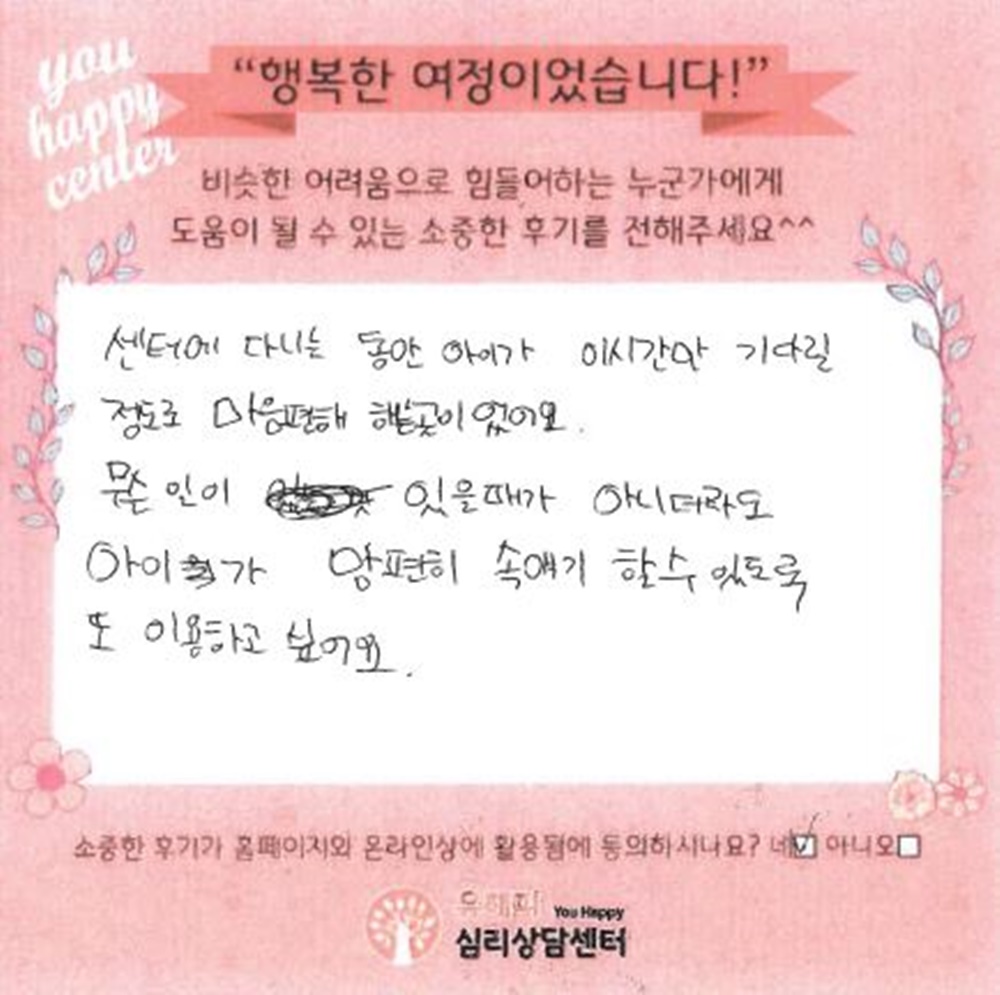 you
happy
center
“행복한 여정이었습니다!”
비슷한 어려움으로 힘들어하는 누군가에게
도움이 될 수 있는 소중한 후기를 전해주세요^^
센터에 다니는 동안 아이가 이시간만 기다릴
정도로 마음편해 했던곳이었어요.
무슨 일이 있을때가 아니더라도
아이가 맘편히 속얘기 할수 있도록
또 이용하고 싶어요.
소중한 후기가 홈페이지와 온라인상에 활용됨에 동의하시나요? 네 아니오
유해피 You Happy
심리상담센터